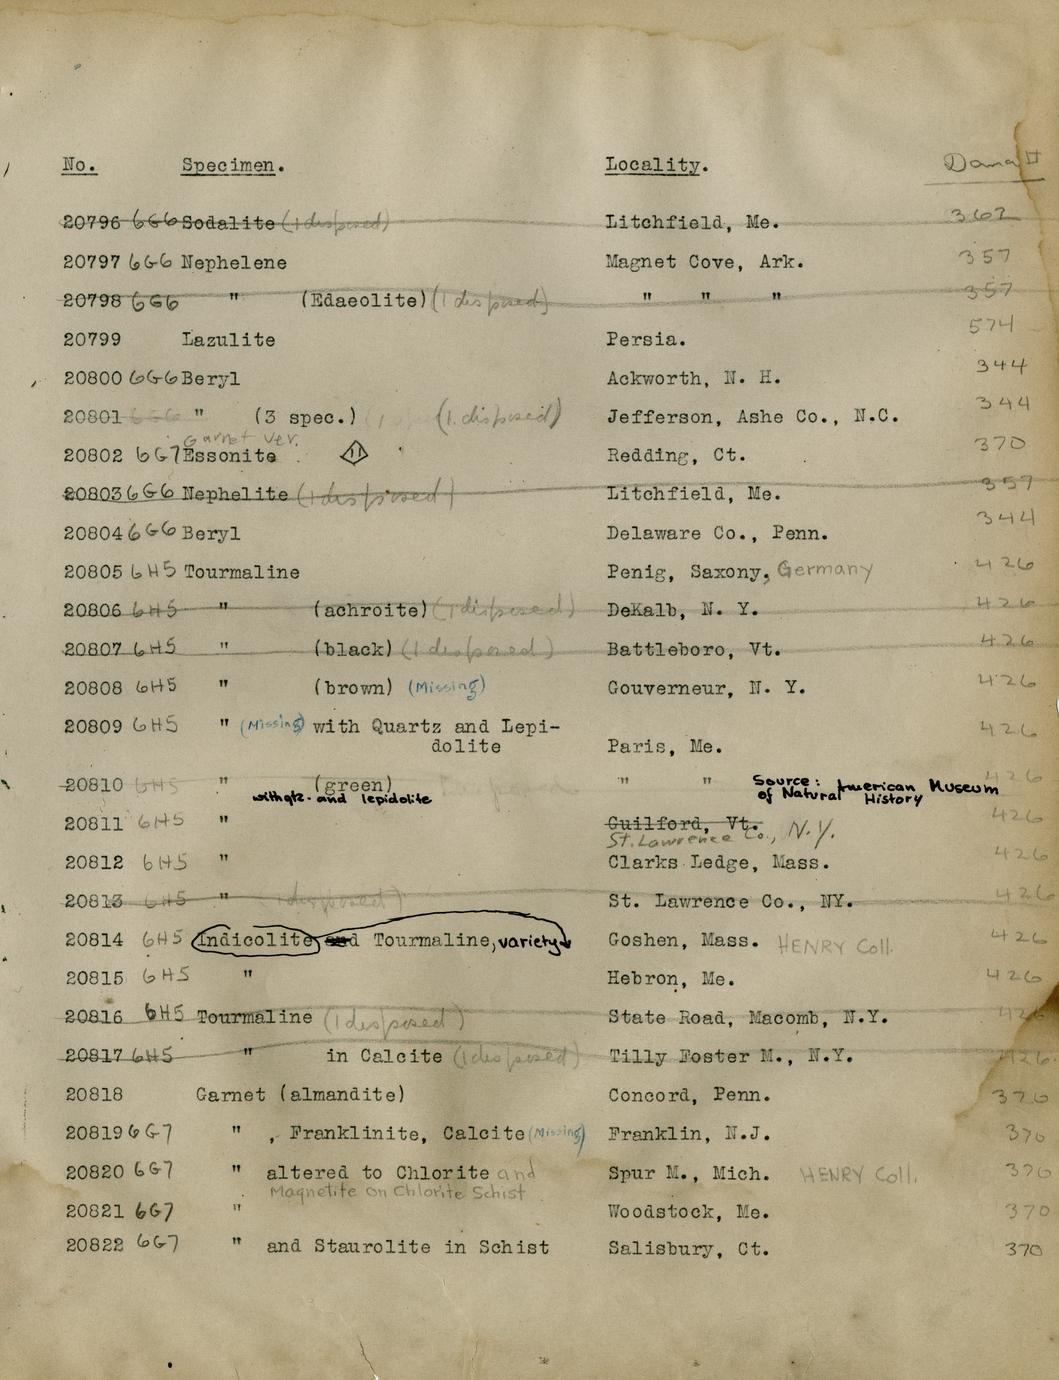 No. Specimen. Locality. Dana II
20796 6G6 Sodalite (1 disposed) Litchfield, Me. 362
20797 6G6 Nephelene Magnet Cove, Ark. 357
20798 6G6 " (Edaeolite) (1 disposed) " " " 357
20799 Lazulite Persia. 574
20800 6G6 Beryl Ackworth, N. H. 344
20801 6G6 " (3 spec.) (1 disposed) Jefferson, Ashe Co., N.C. 344
Garnet Ver.
20802 6G7 Essonite 11 Redding, Ct. 370
20803 6G6 Nephelite (1 disposed) Litchfield, Me. 357
20804 6G6 Beryl Delaware Co., Penn. 344
20805 6H5 Tourmaline Penig, Saxony, Germany 426
20806 6H5 " (achroite) (1 disposed) DeKalb, N. Y. 426
20807 6H5 " (black) (1 disposed) Battleboro, Vt. 426
20808 6H5 " (brown) (Missing) Gouverneur, N. Y. 426
20809 6H5 " (Missing) with Quartz and Lepi- 426
dolite Paris, Me.
20810 6H5 " (green) " " Source: American Museum 426
with qtz. and lepidolite of Natural History
20811 6H5 " Guilford, Vt. 426
St. Lawrence Co., N.Y.
20812 6H5 " Clarks Ledge, Mass. 426
20813 6H5 " (1 disposed) St. Lawrence Co., NY. 426
20814 6H5 Indicolite and Tourmaline, variety Goshen, Mass. HENRY Coll. 426
20815 6H5 " Hebron, Me. 426
20816 6H5 Tourmaline (1 disposed) State Road, Macomb, N.Y. 426
20817 6H5 " in Calcite (1 disposed) Tilly Foster M., N.Y. 426
20818 Garnet (almandite) Concord, Penn. 370
20819 6G7 " , Franklinite, Calcite (Missing) Franklin, N.J. 370
20820 6G7 " altered to Chlorite and Spur M., Mich. HENRY Coll. 370
Magnetite on Chlorite Schist
20821 6G7 " Woodstock, Me. 370
20822 6G7 " and Staurolite in Schist Salisbury, Ct. 370